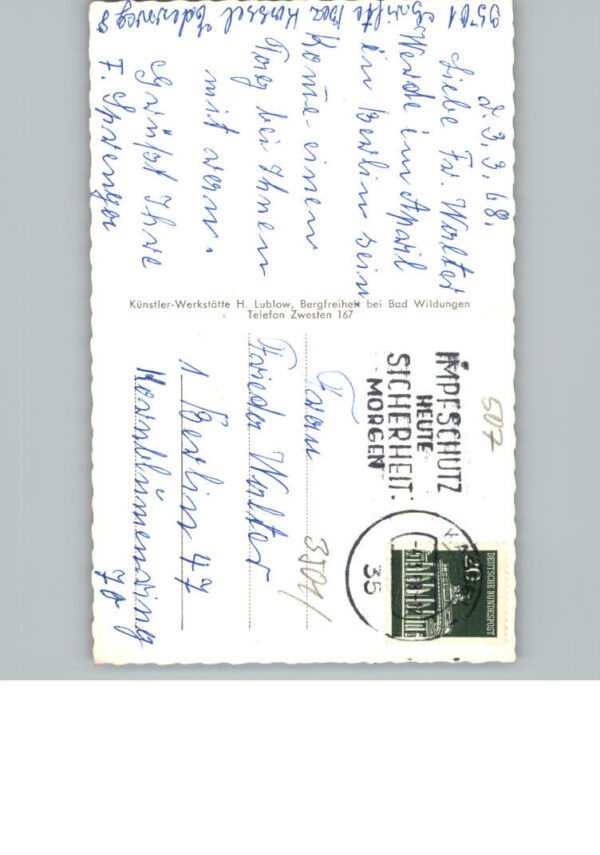 3501
Kassel Ederweg 8
d. 3.3.68.
Liebe Fr. Walter
Werde im April
in Berlin sein
Kome einen
Tag bei Ihnen
mit ran.
Grüßt Ihre
F. Sprenger
Künstler-Werkstätte H. Lublow, Bergfreiheit bei Bad Wildungen
Telefon Zwesten 167
507
IMPF-SCHUTZ
HEUTE
SICHERHEIT
MORGEN
35
DEUTSCHE BUNDESPOST
Frau
3501/
Frieda Walter
1 Berlin 47
Kornblumenring
70